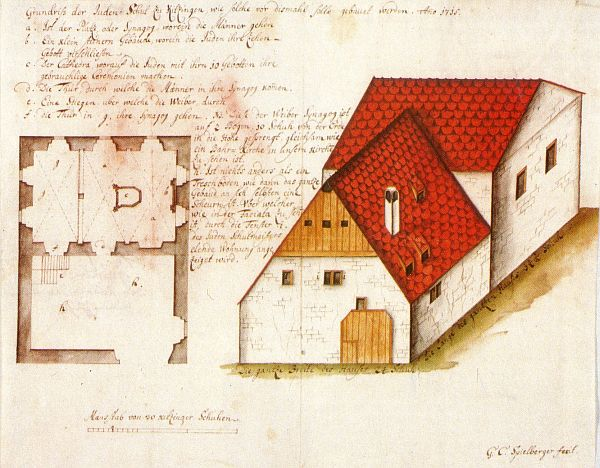 Grundriß der Juden Schul zu Kitzingen wie solche vor dismahl solle gebauet werden. Ao 1755.
a. Ist der Platz oder Synagog worein die Männer gehen
b. Ein klein Gebäude, worein die Juden ihre Zehen
Gebott verschliesen.
c. Der Cathedra worauf die Juden mit ihren 10 Gebotten ihre
gebräuchliche Ceremonien machen.
d. Die Thür durch welche die Männer in ihre Synagog komen.
e. Eine Stiegen uber welche die Weiber durch
f. die Thür in g. ihre Synagog gehen. NB. Diese der Weiber Synagog ist
auf 2 Bögen 10 Schuh von der Erde
in die Höhe gesprengt, gleichsam wie
ein Kirche in unsern Kirchen
zu sehen ist.
h. Ist nichts anders als ein
Treschboden wie dann das gantze
Gebäud an sich selbsten eine
Scheurn ist. Uber welcher
wie in der Faciata zu sehen
ist, durch die Fenster
des Juden Schulmeisters
elende Wohnung ange
zeiget wird.
Die gantze Breite des Hauses 24 Schuh
Maas stab von 20 Kitzinger Schuhen
G. C. Spielberger fecit.